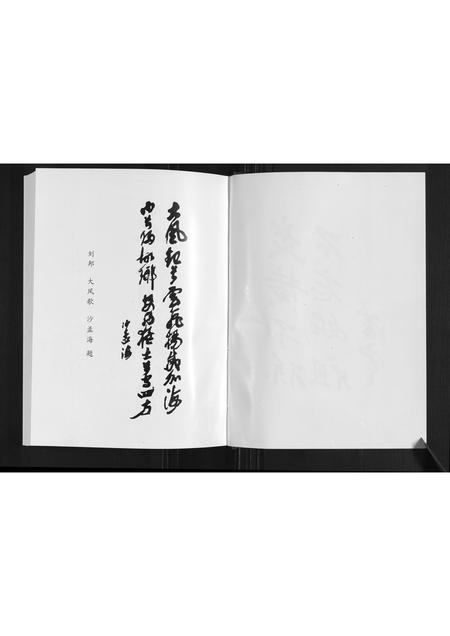 大风起兮云飞扬威加海
内兮归故乡安得猛士兮守四方
沙孟海
刘邦 大风歌 沙孟海 题